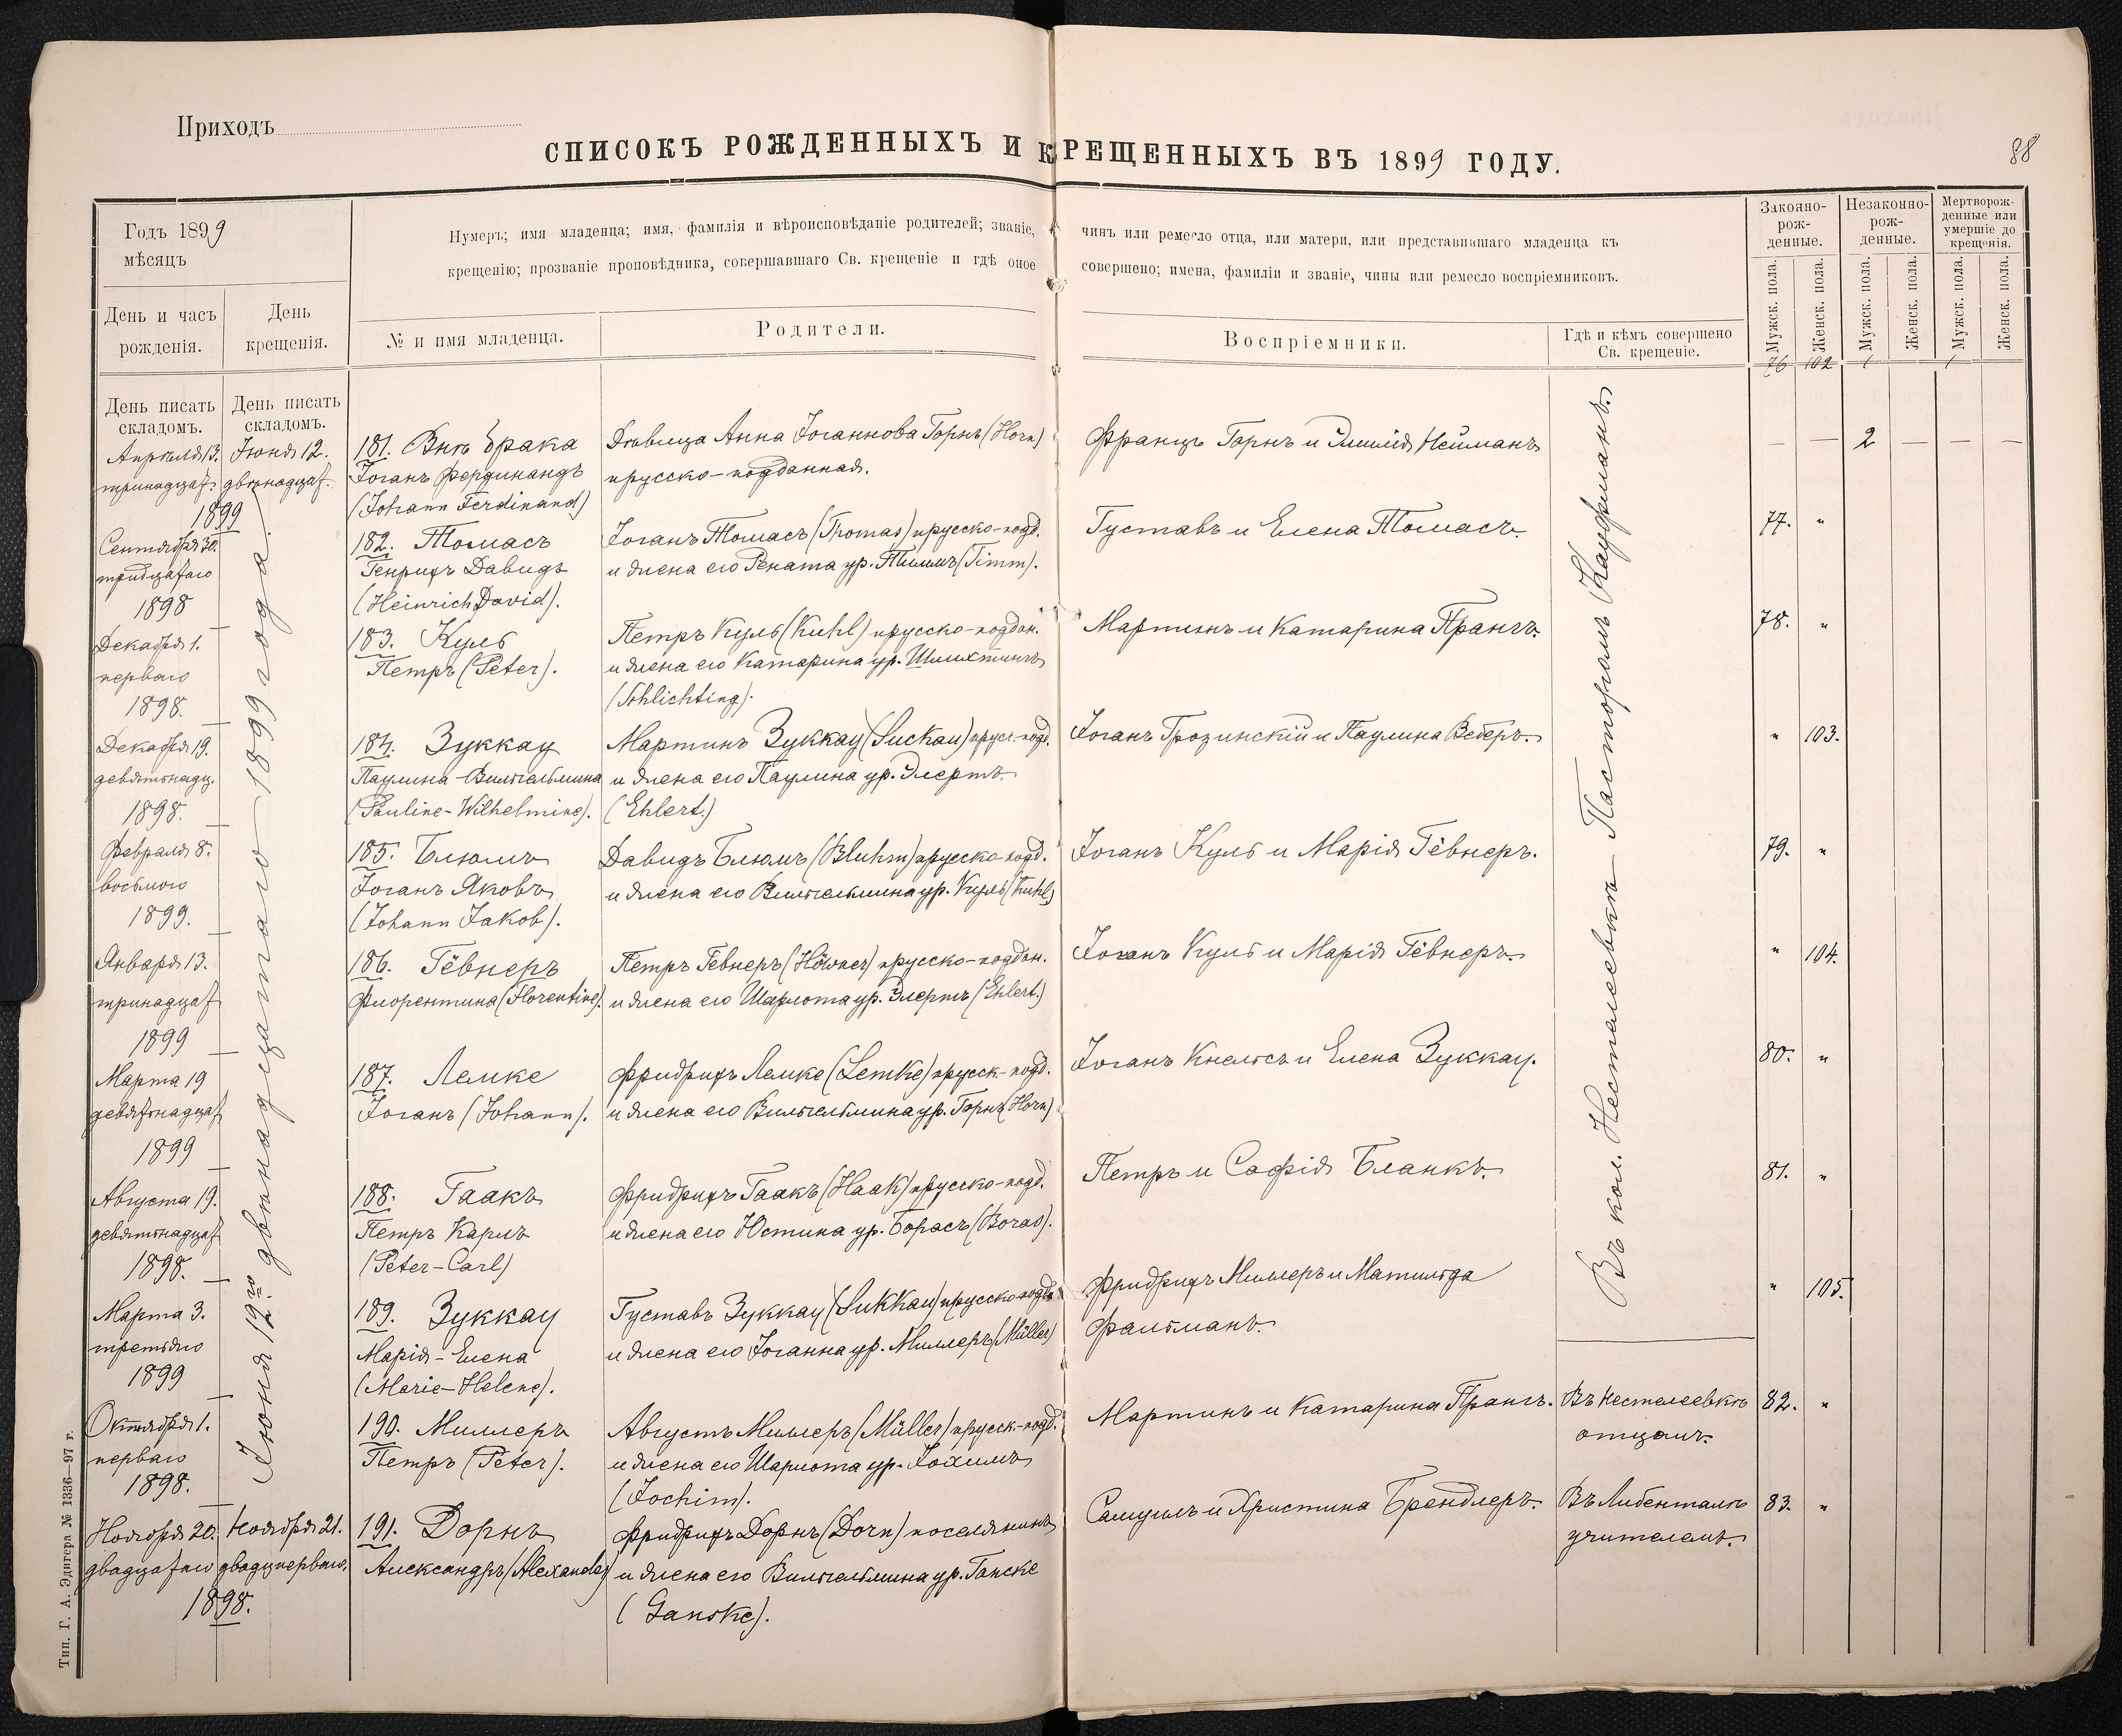 Приходъ
СПИСОКЪ РОЖДЕННЫХЪ И КРЕЩЕННЫХЪ ВЪ 1899 ГОДУ.
88
Годъ 1899
мѣсяцъ
День и часъ
рожденія.
День
крещенія.
Нумеръ; имя младенца; имя, фамилія и вѣроисповѣданіе родителей; званіе, чинъ или ремесло отца, или матери, или представившаго младенца къ
крещенію; прозваніе проповѣдника, совершавшаго Св. крещеніе и гдѣ оное совершено; имена, фамиліи и званіе, чины или ремесло воспріемниковъ.
№ и имя младенца.
Родители.
Воспріемники.
Гдѣ и кѣмъ совершено
Св. крещеніе.
Законно-
рож-
денные.
Незаконно-
рож-
денные.
Мертворож-
денные или
умершіе до
крещенія.
Мужск. пола.
Женск. пола.
Мужск. пола.
Женск. пола.
Мужск. пола.
Женск. пола.
76 102 1 1
День писать
складомъ.
День писать
складомъ.
Апрѣля 13.
тринадцат.
1899
Іюня 12.
двѣнадцат.
181. Внѣ брака
Іоганъ Фердинандъ
(Johann Ferdinand)
Дѣвица Анна Іоганнова Горнъ (Horn)
прусско-подданная.
Францъ Горнъ и Эмилія Нейманъ
— — 2 — — —
Сентября 30.
тридцатаго
1898
182. Томасъ
Генрихъ Давидъ
(Heinrich David).
Іоганъ Томасъ (Thomas) прусско-подд.
и жена его Рената ур. Тиммъ (Timm).
Густавъ и Елена Томасъ.
77. "
Декабря 1.
перваго
1898.
183. Куль
Петръ (Peter).
Петръ Куль (Kuhl) прусско-поддан.
и жена его Катарина ур. Шлихтингъ
(Schlichting).
Мартинъ и Катарина Прангъ.
78. "
Декабря 19.
девятнадц.
1898.
184. Зуккау
Паулина-Вильгельмина
(Pauline-Wilhelmine).
Мартинъ Зуккау (Suckau) прусс.-подд.
и жена его Паулина ур. Элертъ
(Ehlert.)
Іоганъ Грозинскій и Паулина Веберъ.
" 103.
Февраля 8.
восьмого
1899.
185. Блюмъ
Іоганъ Яковъ
(Johann Jakob).
Давидъ Блюмъ (Bluhm) прусско-подд.
и жена его Вильгельмина ур. Куль (Kuhl)
Іоганъ Куль и Марія Гёвнеръ.
79. "
Января 13.
тринадцат
1899
186. Гёвнеръ
Флорентина (Florentine).
Петръ Гёвнеръ (Höwner) прусско-поддан.
и жена его Шарлота ур. Элертъ (Ehlert.)
Іоганъ Куль и Марія Гёвнеръ.
" 104.
Марта 19
девятнадцат
1899
187. Лемке
Іоганъ (Johann).
Фридрихъ Лемке (Lemke) прусск-подд.
и жена его Вильгельмина ур. Горнъ (Horn)
Іоганъ Кнельсъ и Елена Зуккау.
80. "
Августа 19.
девятнадцат
1898.
188. Гаакъ
Петръ Карлъ
(Peter-Carl)
Фридрихъ Гаакъ (Haak) прусско-подд.
и жена его Юстина ур. Борасъ (Boras).
Петръ и Софія Бланкъ.
81. "
Марта 3.
третьяго
1899
189. Зуккау
Марія-Елена
(Marie-Helene).
Густавъ Зуккау (Sukkau) прусско-подд.
и жена его Іоганна ур. Миллеръ (Müller)
Фридрихъ Миллеръ и Матильда
Фальманъ.
" 105.
Іюня 12го двѣнадцатаго 1899 года.
Въ кол. Нестелеевкѣ Пасторомъ Кауфманъ.
Октября 1.
перваго
1898.
190. Миллеръ
Петръ (Peter).
Августъ Миллеръ (Müller) прусск.-подд.
и жена его Шарлота ур. Іохимъ
(Jochim).
Мартинъ и Катарина Прангъ.
Въ Нестелеевкѣ
отцомъ.
82. "
Ноября 20.
двадцатаго
1898.
Ноября 21.
двадц.перваго.
191. Дорнъ
Александръ (Alexander)
Фридрихъ Дорнъ (Dorn) поселянинъ
и жена его Вильгельмина ур. Ганске
(Ganske).
Самуилъ и Христина Брендлеръ.
Въ Либенталѣ
учителемъ.
83. "
Тип. Г. А. Эдигера № 1336—97 г.